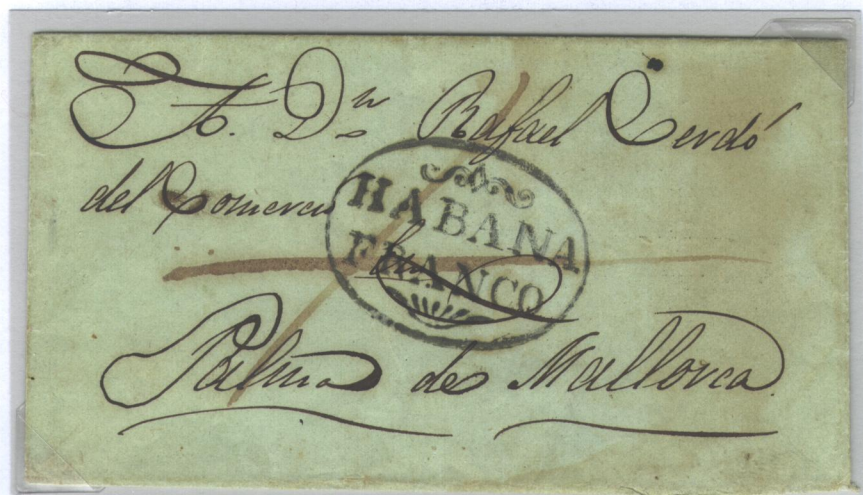 Dn Rafael Cerdó
del Comercio
HABANA
FRANCO
Palma de Mallorca